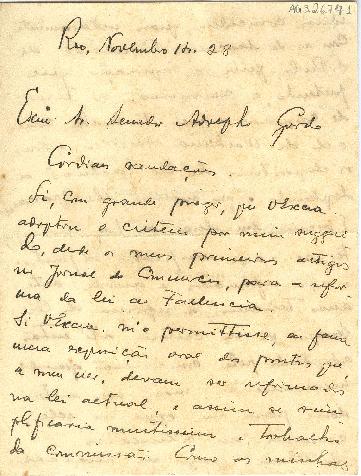 AG326741
Rio, Novembro 14. 28
Exmo Sr. Senador Adolpho Gordo
Cordiaes saudações.
Li, com grande prazer, que V.Excia
adoptou o criterio por mim suggeri
do, desde os meus primeiros artigos
no Jornal do Commercio, para a refor
ma da lei de Fallencia.
Si V.Excia. m'o permittisse, eu faria
uma exposição oral dos pontos que,
a meu ver, devam ser reformados
na lei actual, e assim se sim
plificaria muitissimo o trabalho
da commissão. Como as minhas